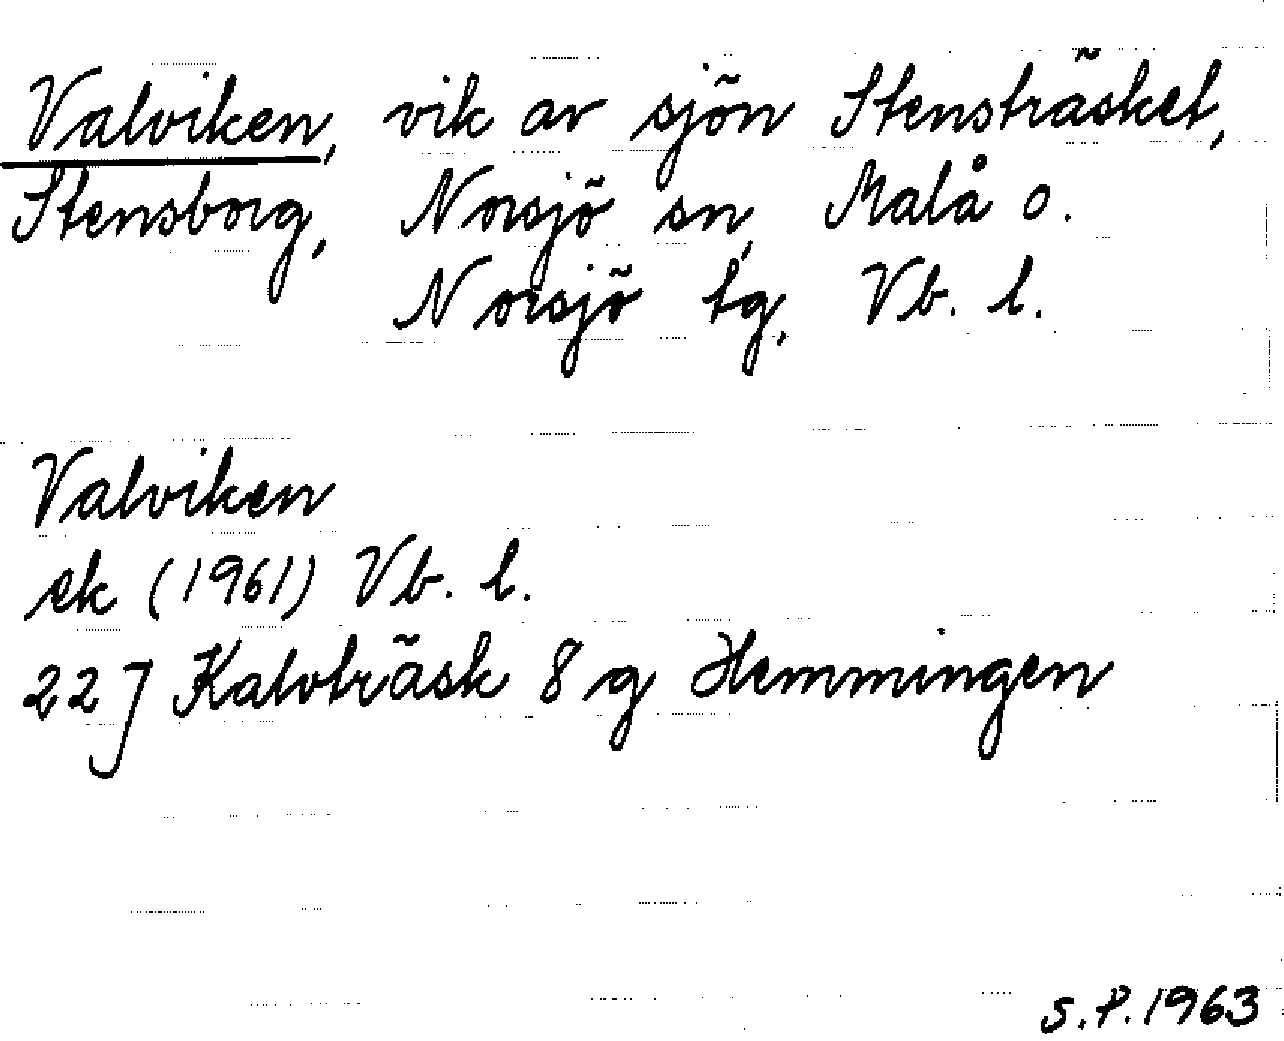 Valviken, vik av sjön Stensträsket,
Stensborg, Norsjö sn, Malå o.
Norsjö tg, Vb. l.
Valviken
ek (1961) Vb. l.
22 J Kalvträsk 8 g Hemmingen
S.P. 1963